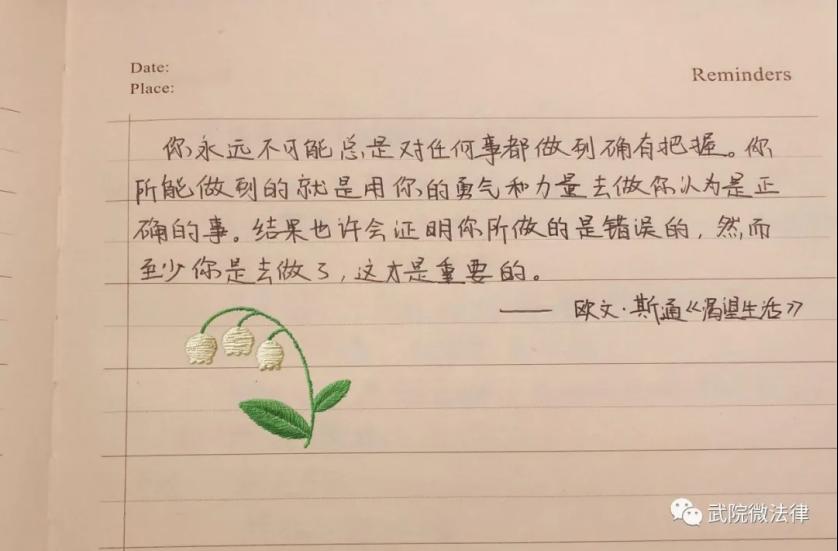 Date:
Place:
Reminders
你永远不可能总是对任何事都做到确有把握。你
所能做到的就是用你的勇气和力量去做你认为是正
确的事。结果也许会证明你所做的是错误的，然而
至少你是去做了，这才是重要的。
—— 欧文·斯通《渴望生活》
武院微法律